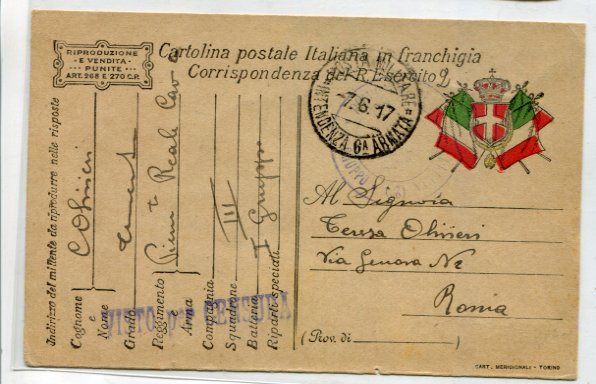 RIPRODUZIONE
E VENDITA
PUNITE
ART. 268 E 270 C.P.
Cartolina postale Italiana in franchigia
Corrispondenza del R. Esercito
POSTA MILITARE
-7.6.17
INTENDENZA 6A ARMATA
Indirizzo del mittente da riprodurre nelle risposte
Cognome e Nome
C Olivieri
Grado
Reggimento e Arma
Reali
Compagnia
Squadrone
III
Batteria
Riparti speciali
I Gruppo
VISTO CENSURA
Al Signora
Teresa Olivieri
Via Genova N2
Roma
(Prov. di)
CART. MERIDIONALI - TORINO